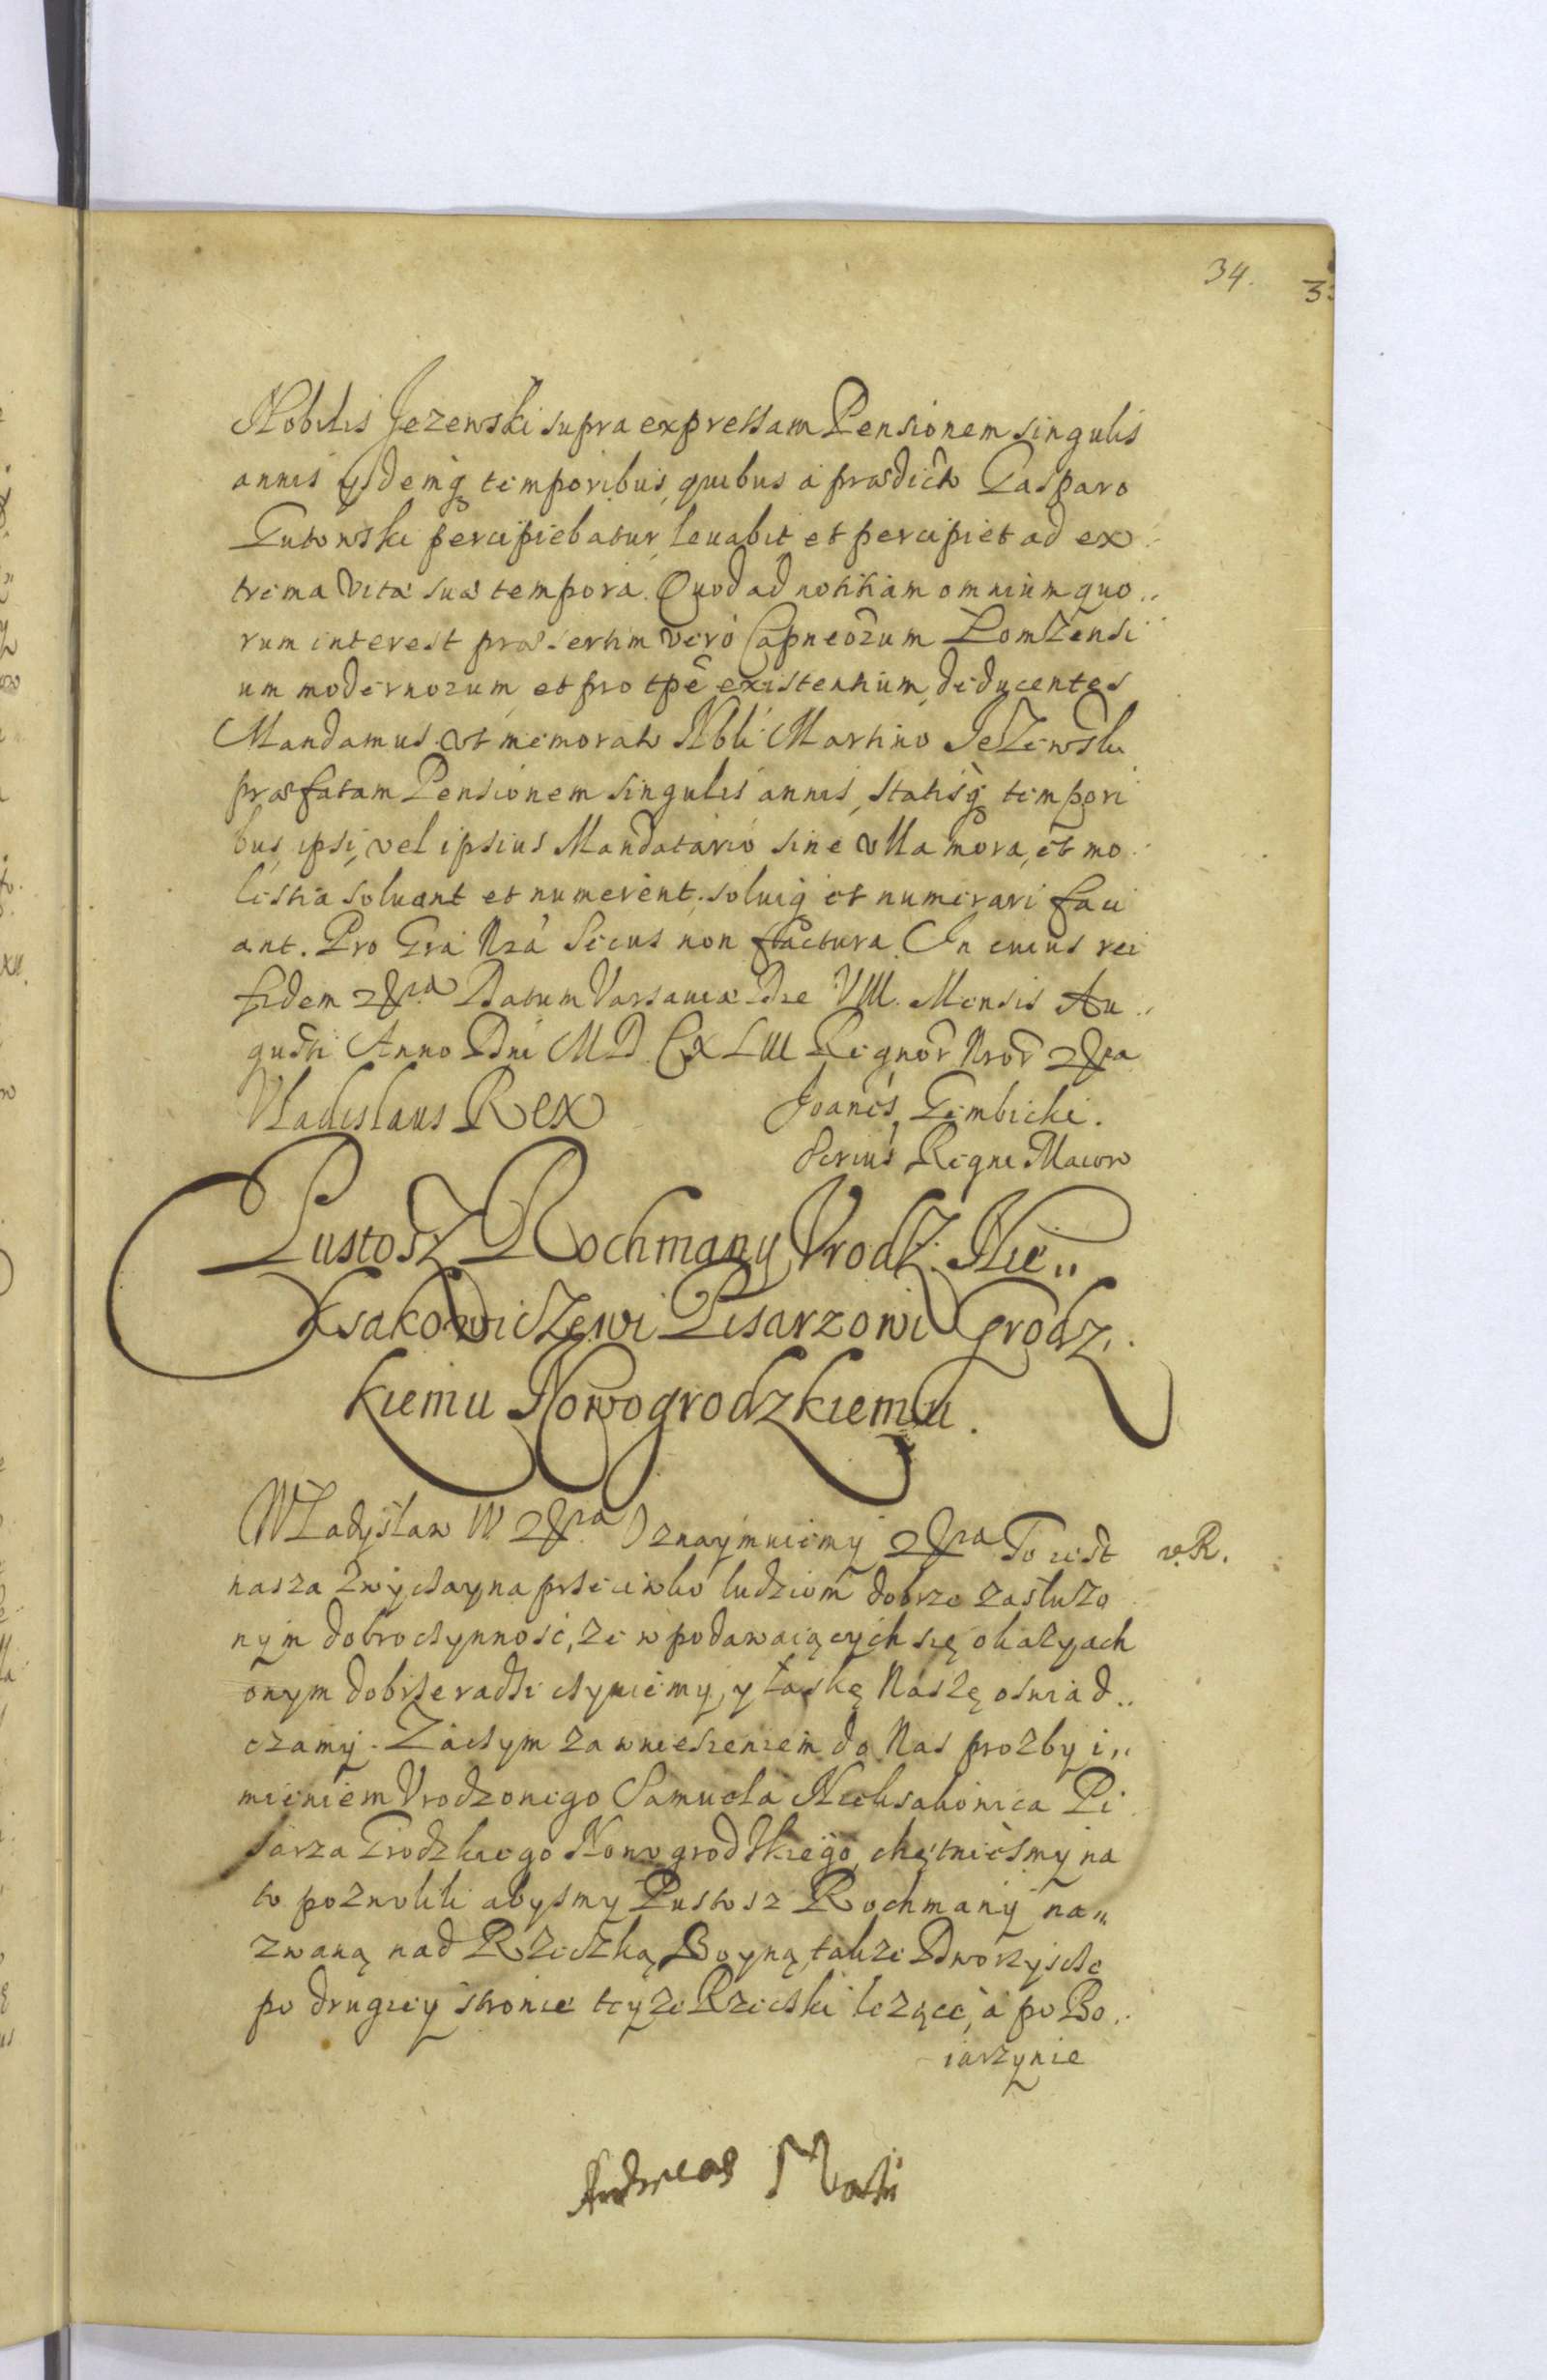 34.
3
Nobilis Jezewski supra expressam Pensionem singulis
annis ysdemq temporibus, quibus a prædicto Gasparo
Gutowski percipiebatur, levabit et percipiet ad ex
trema vitæ suæ tempora. Quod ad notitiam omnium quo„
rum interest præsertim vero Capneorum Lomzensi
um modernorum, et pro tpe existentium, deducentes
Mandamus ut memorato Nbli Martino Jezewski
præfatam Pensionem singulis annis, statisq tempori
bus, ipsi, vel ipsius Mandatario sine ulla mora, et mo
lestia solvant et numerent, solviq et numerari faci
ant. Pro Gra Nra Secus non factura. In cuius rei
fidem etc. Datum Varsaviæ Die VIII. Mensis Au„
gusti Anno Dni MDCXLIII Regnor Nror etc.
Vladislaus Rex Joanes Gembicki.
Scrius Regni Maior
Pustosz Rochmany Vrodz. Nie„
ksakowiczewi Pisarzowi Grodz.
kiemu Nowogrodzkiemu.
Władysław IV etc. Oznaymuiemy etc. Ta iest v.R.
nasza zwyczayna przeciwko ludziom dobrze zasłuzo
nym dobroczynność, ze w podawaiących się okazyach
onym dobrze radzi czyniemy, y łaskę Naszę oswiad„
czamy. Zaczym za wniesieniem do Nas prozby i„
mieniem Vrodzonego Samuela Nieksakowica Pi
sarza Grodzkiego Nowogrodzkiego, chętniesmy na
to pozwolili abysmy Pustosz Rochmany na„
zwaną nad Rzeczką Boyną, takze Dworzyscze
po drugiey stronie teyze Rzeczki lezące, a po Bo„
iarzynie
Andreas